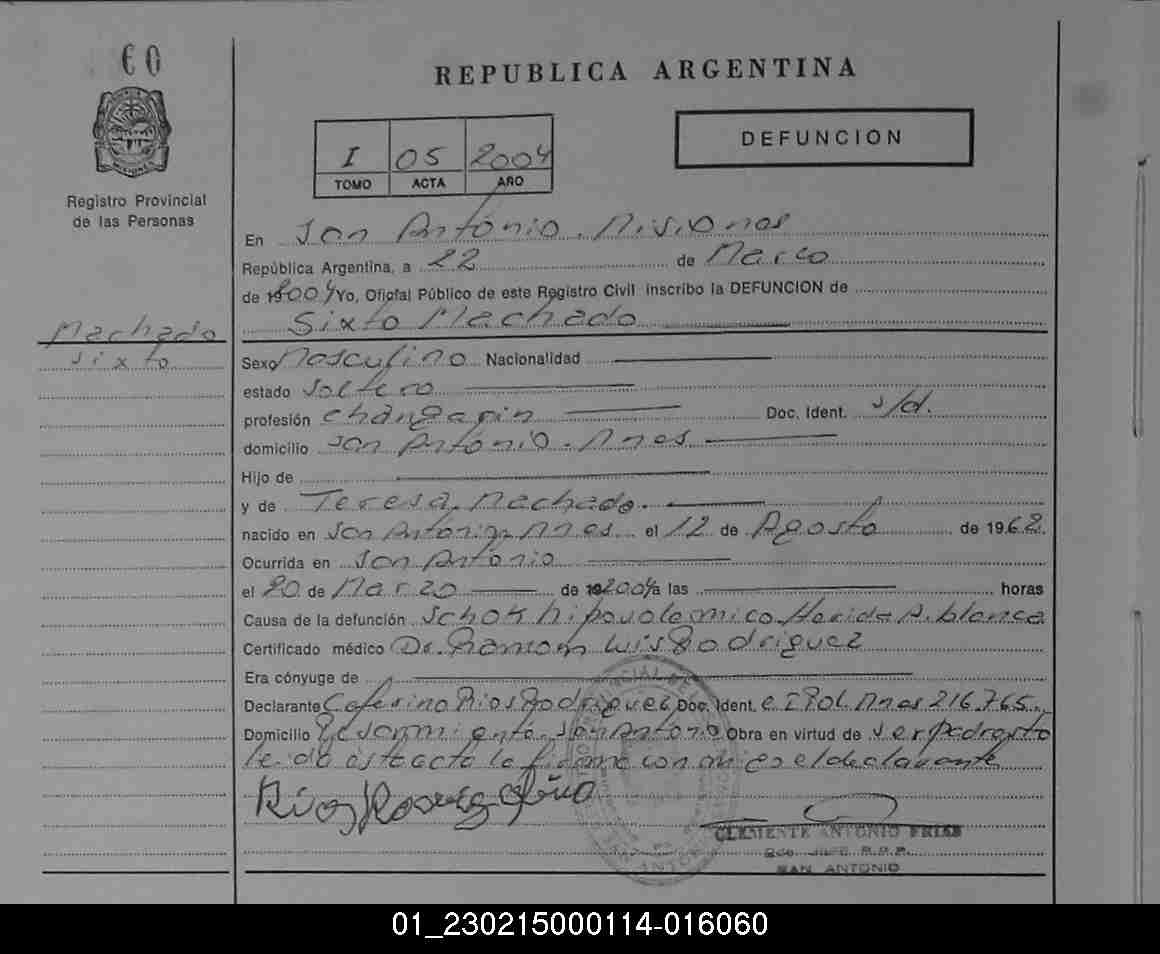 60
REPUBLICA ARGENTINA
I 05 2004
TOMO ACTA AÑO
DEFUNCION
Registro Provincial
de las Personas
En San Antonio. Misiones
República Argentina, a 22 de Marco
de 2004 Yo, Oficial Público de este Registro Civil inscribo la DEFUNCION de
Sixto Machado
Machado
Sixto
Sexo Masculino Nacionalidad
estado Soltero
profesión changarin Doc. Ident. s/d.
domicilio San Antonio. Mnes
Hijo de
y de Teresa Machado.
nacido en San Antonio, Mnes el 12 de Agosto de 1968
Ocurrida en San Antonio
el 20 de Marzo de 2004 a las horas
Causa de la defunción Schok hipovolemico. Herida A. blanca
Certificado médico Dr. Ramom Luis Rodriguez
Era cónyuge de
Declarante Ceferino Rios Rodriguez Doc. Ident. C I Pol. Mnes 216.765
Domicilio San Antonio Obra en virtud de ser padrasto
leida esta acta la firma con migo el declarante
CLEMENTE ANTONIO FRIAS
SAN ANTONIO
01_230215000114-016060